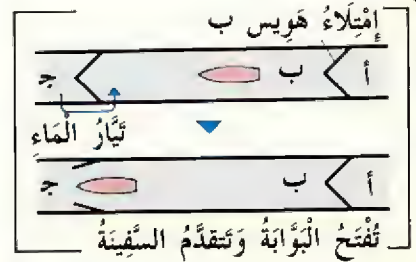 إِمْتِلَاءُ هَوِيس ب
أ ب جـ
تَيَّارُ الْمَاءِ
أ ب جـ
تُفْتَحُ الْبَوَّابَةُ وَتَتقدَّمُ السَّفِينَةُ